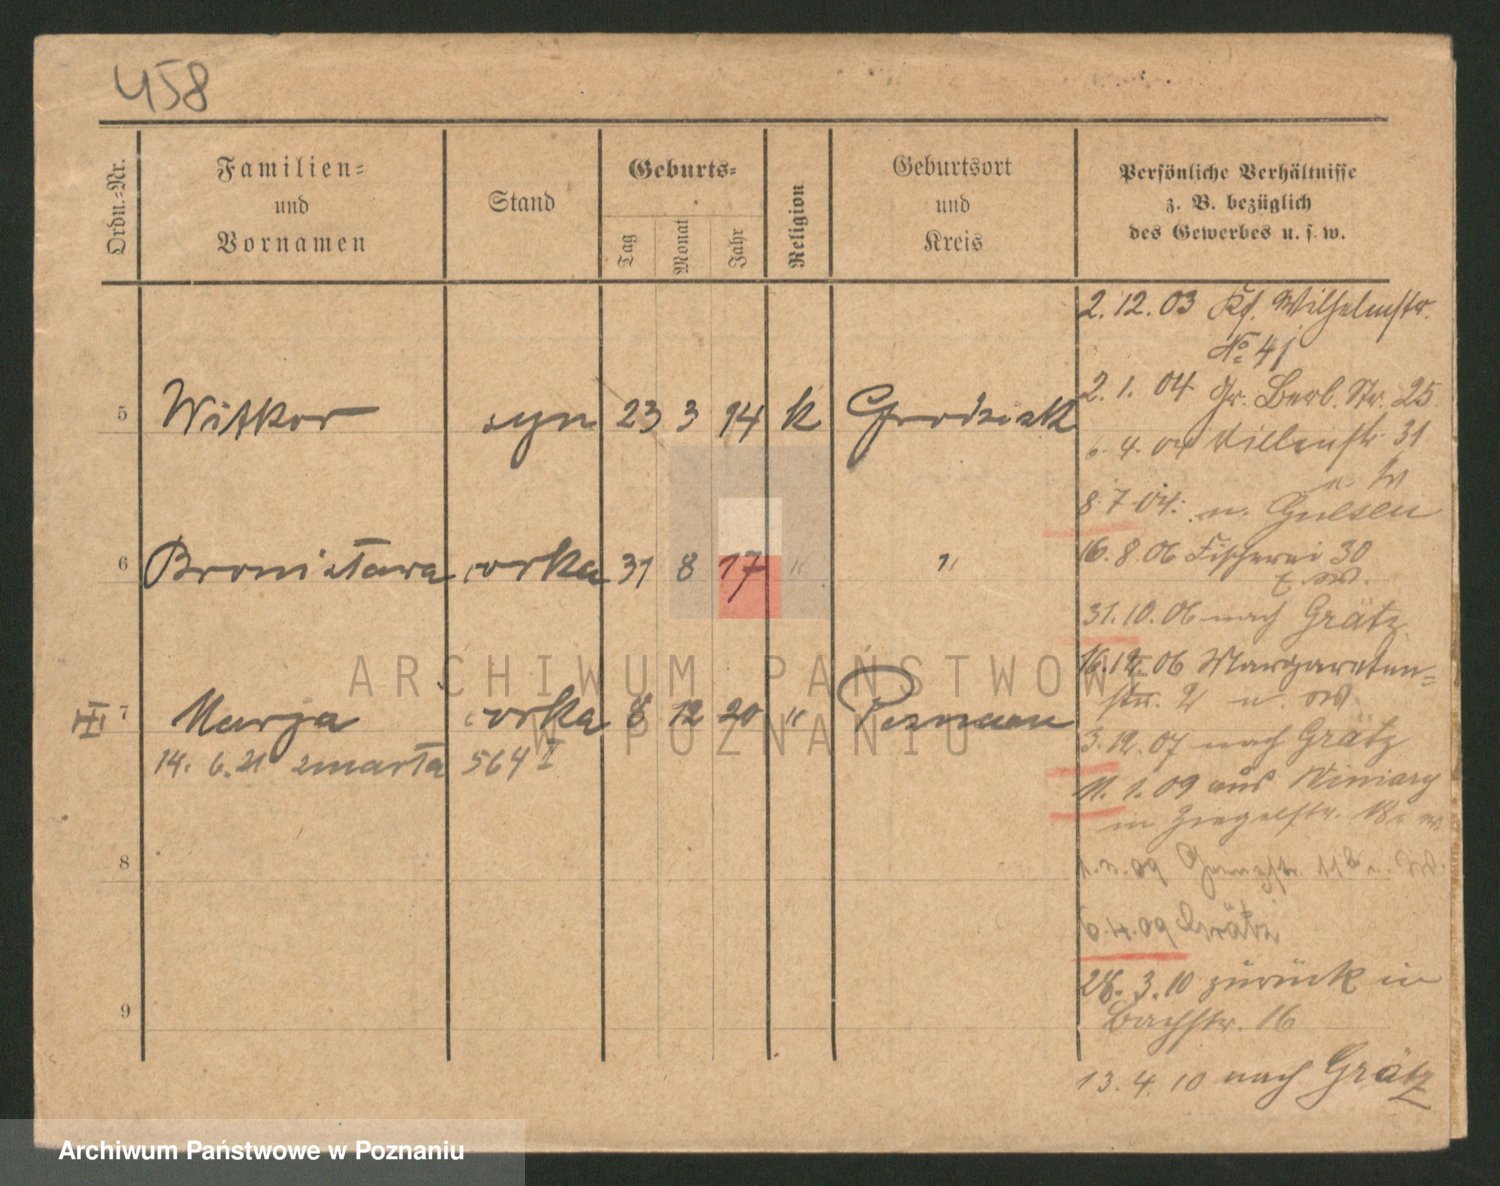 458
Ordn.=Nr.
Familien=
und
Vornamen
Stand
Geburts=
Tag
Monat
Jahr
Religion
Geburtsort
und
Kreis
Persönliche Verhältnisse
z. B. bezüglich
des Gewerbes u. s. w.
5 Wiktor syn 23 3 14 k Grodzisk
6 Bronisława córka 31 8 17 " "
III 7 Marja córka 8 12 20 " Poznań
14. 6. 21 zmarła 564 I
8
9
2. 12. 03 Kf. Wilhelmstr.
No 41
2. 1. 04 Gr. Berl. Str. 25
6. 4. 04 31
8. 7. 04. n.
16. 8. 06 Fischerei 30
31. 10. 06 nach Grätz
16. 12. 06 Margareten=
str.
3. 12. 07 nach Grätz
11. 1. 09 aus Winiary
in Ziegelstr. 18
09
6. 4. 09 Grätz
28. 3. 10 zurück in
Bachstr. 16
13. 4. 10 nach Grätz
ARCHIWUM PAŃSTWOWE
W POZNANIU
Archiwum Państwowe w Poznaniu